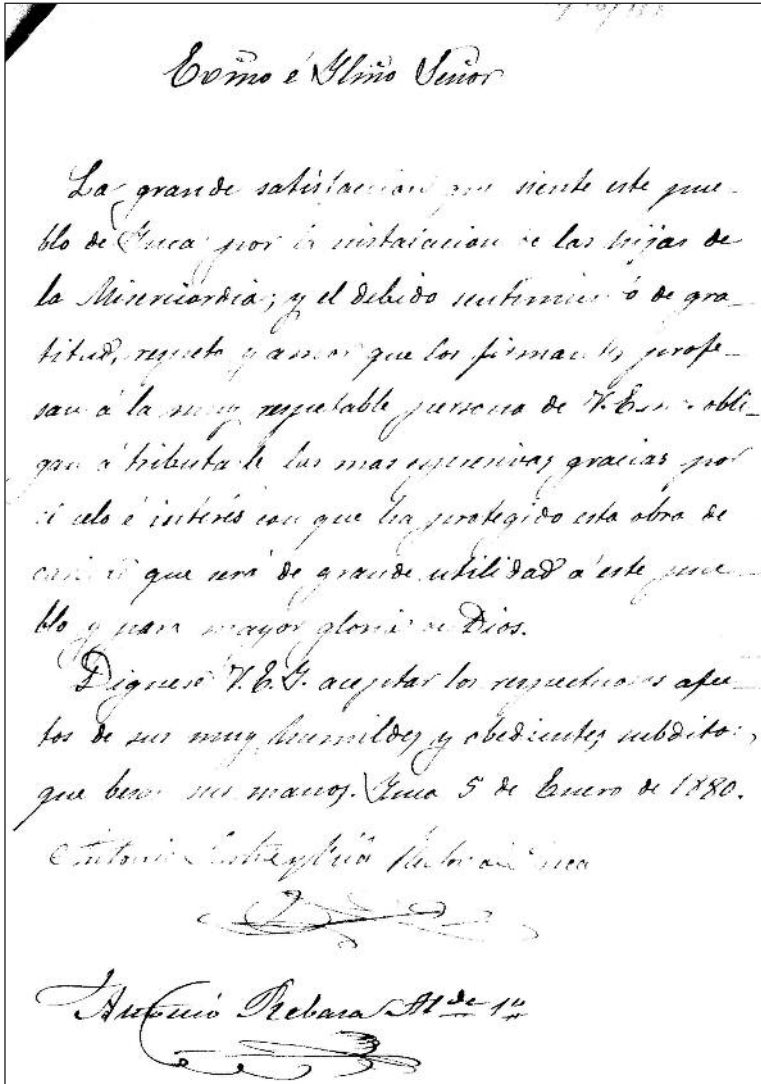 Exmo é Ilmo Señor
La grande satisfaccion que siente este pue-
blo de Inca por la instalacion de las hijas de
la Misericordia; y el debido sentimiento de gra-
titud, respeto y amor que los firmantes profe-
san á la muy respetable persona de V. E. obli-
gan á tributarle las mas espresivas gracias por
el celo é interés con que ha protegido esta obra de
caridad que será de grande utilidad á este pue-
blo y para mayor gloria de Dios.
Dignese V. E. I. aceptar los respectuosos afec-
tos de sus muy humildes y obedientes subditos,
que besan sus manos. Inca 5 de Enero de 1880.
Antonio Rector de Inca
Antonio Rebasa Alde 1º